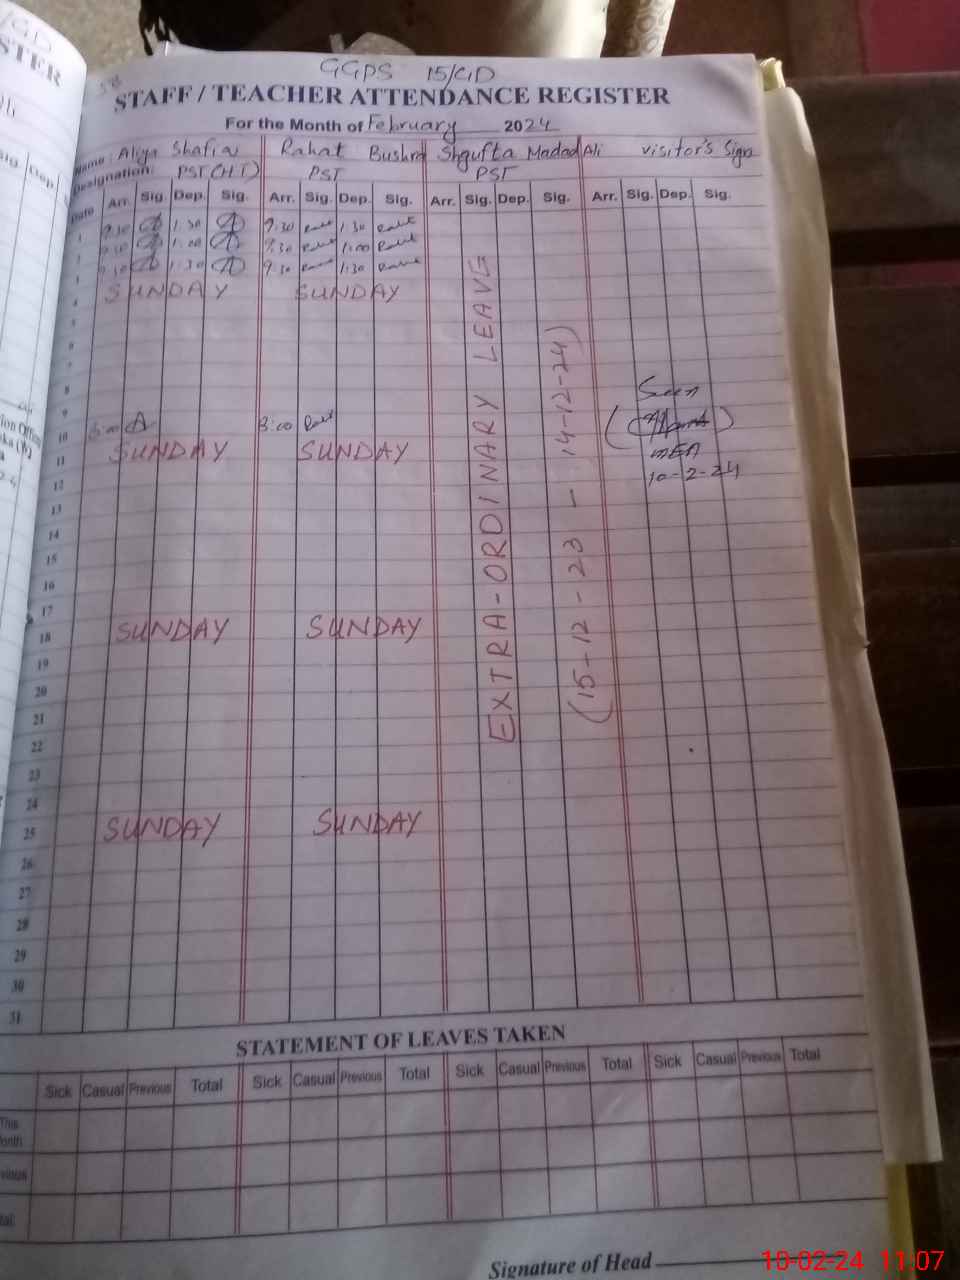 GGPS 15/GD
STAFF / TEACHER ATTENDANCE REGISTER
For the Month of February 2024
Name : Aliya Shafiq Rahat Bushra Shgufta Madad Ali visitor's Sign
Designation: PST(HT) PST PST
Date Arr. Sig. Dep. Sig. Arr. Sig. Dep. Sig. Arr. Sig. Dep. Sig. Arr. Sig. Dep. Sig.
1 9:30 1:30 9:30 1:30
2 9:30 1:00 9:30 1:00
3 9:30 1:30 9:30 1:30
4 SUNDAY SUNDAY
5
6
7
8
9
10 8:00 A 8:00
11 SUNDAY SUNDAY
12
13
14
15
16
17
18 SUNDAY SUNDAY
19
20
21
22
23
24
25 SUNDAY SUNDAY
26
27
28
29
30
31
EXTRA-ORDINARY LEAVE
(15-12-23 - 14-12-24)
Seen
MEA
10-2-24
STATEMENT OF LEAVES TAKEN
Sick Casual Previous Total Sick Casual Previous Total Sick Casual Previous Total Sick Casual Previous Total
This
Signature of Head
10-02-24 11:07